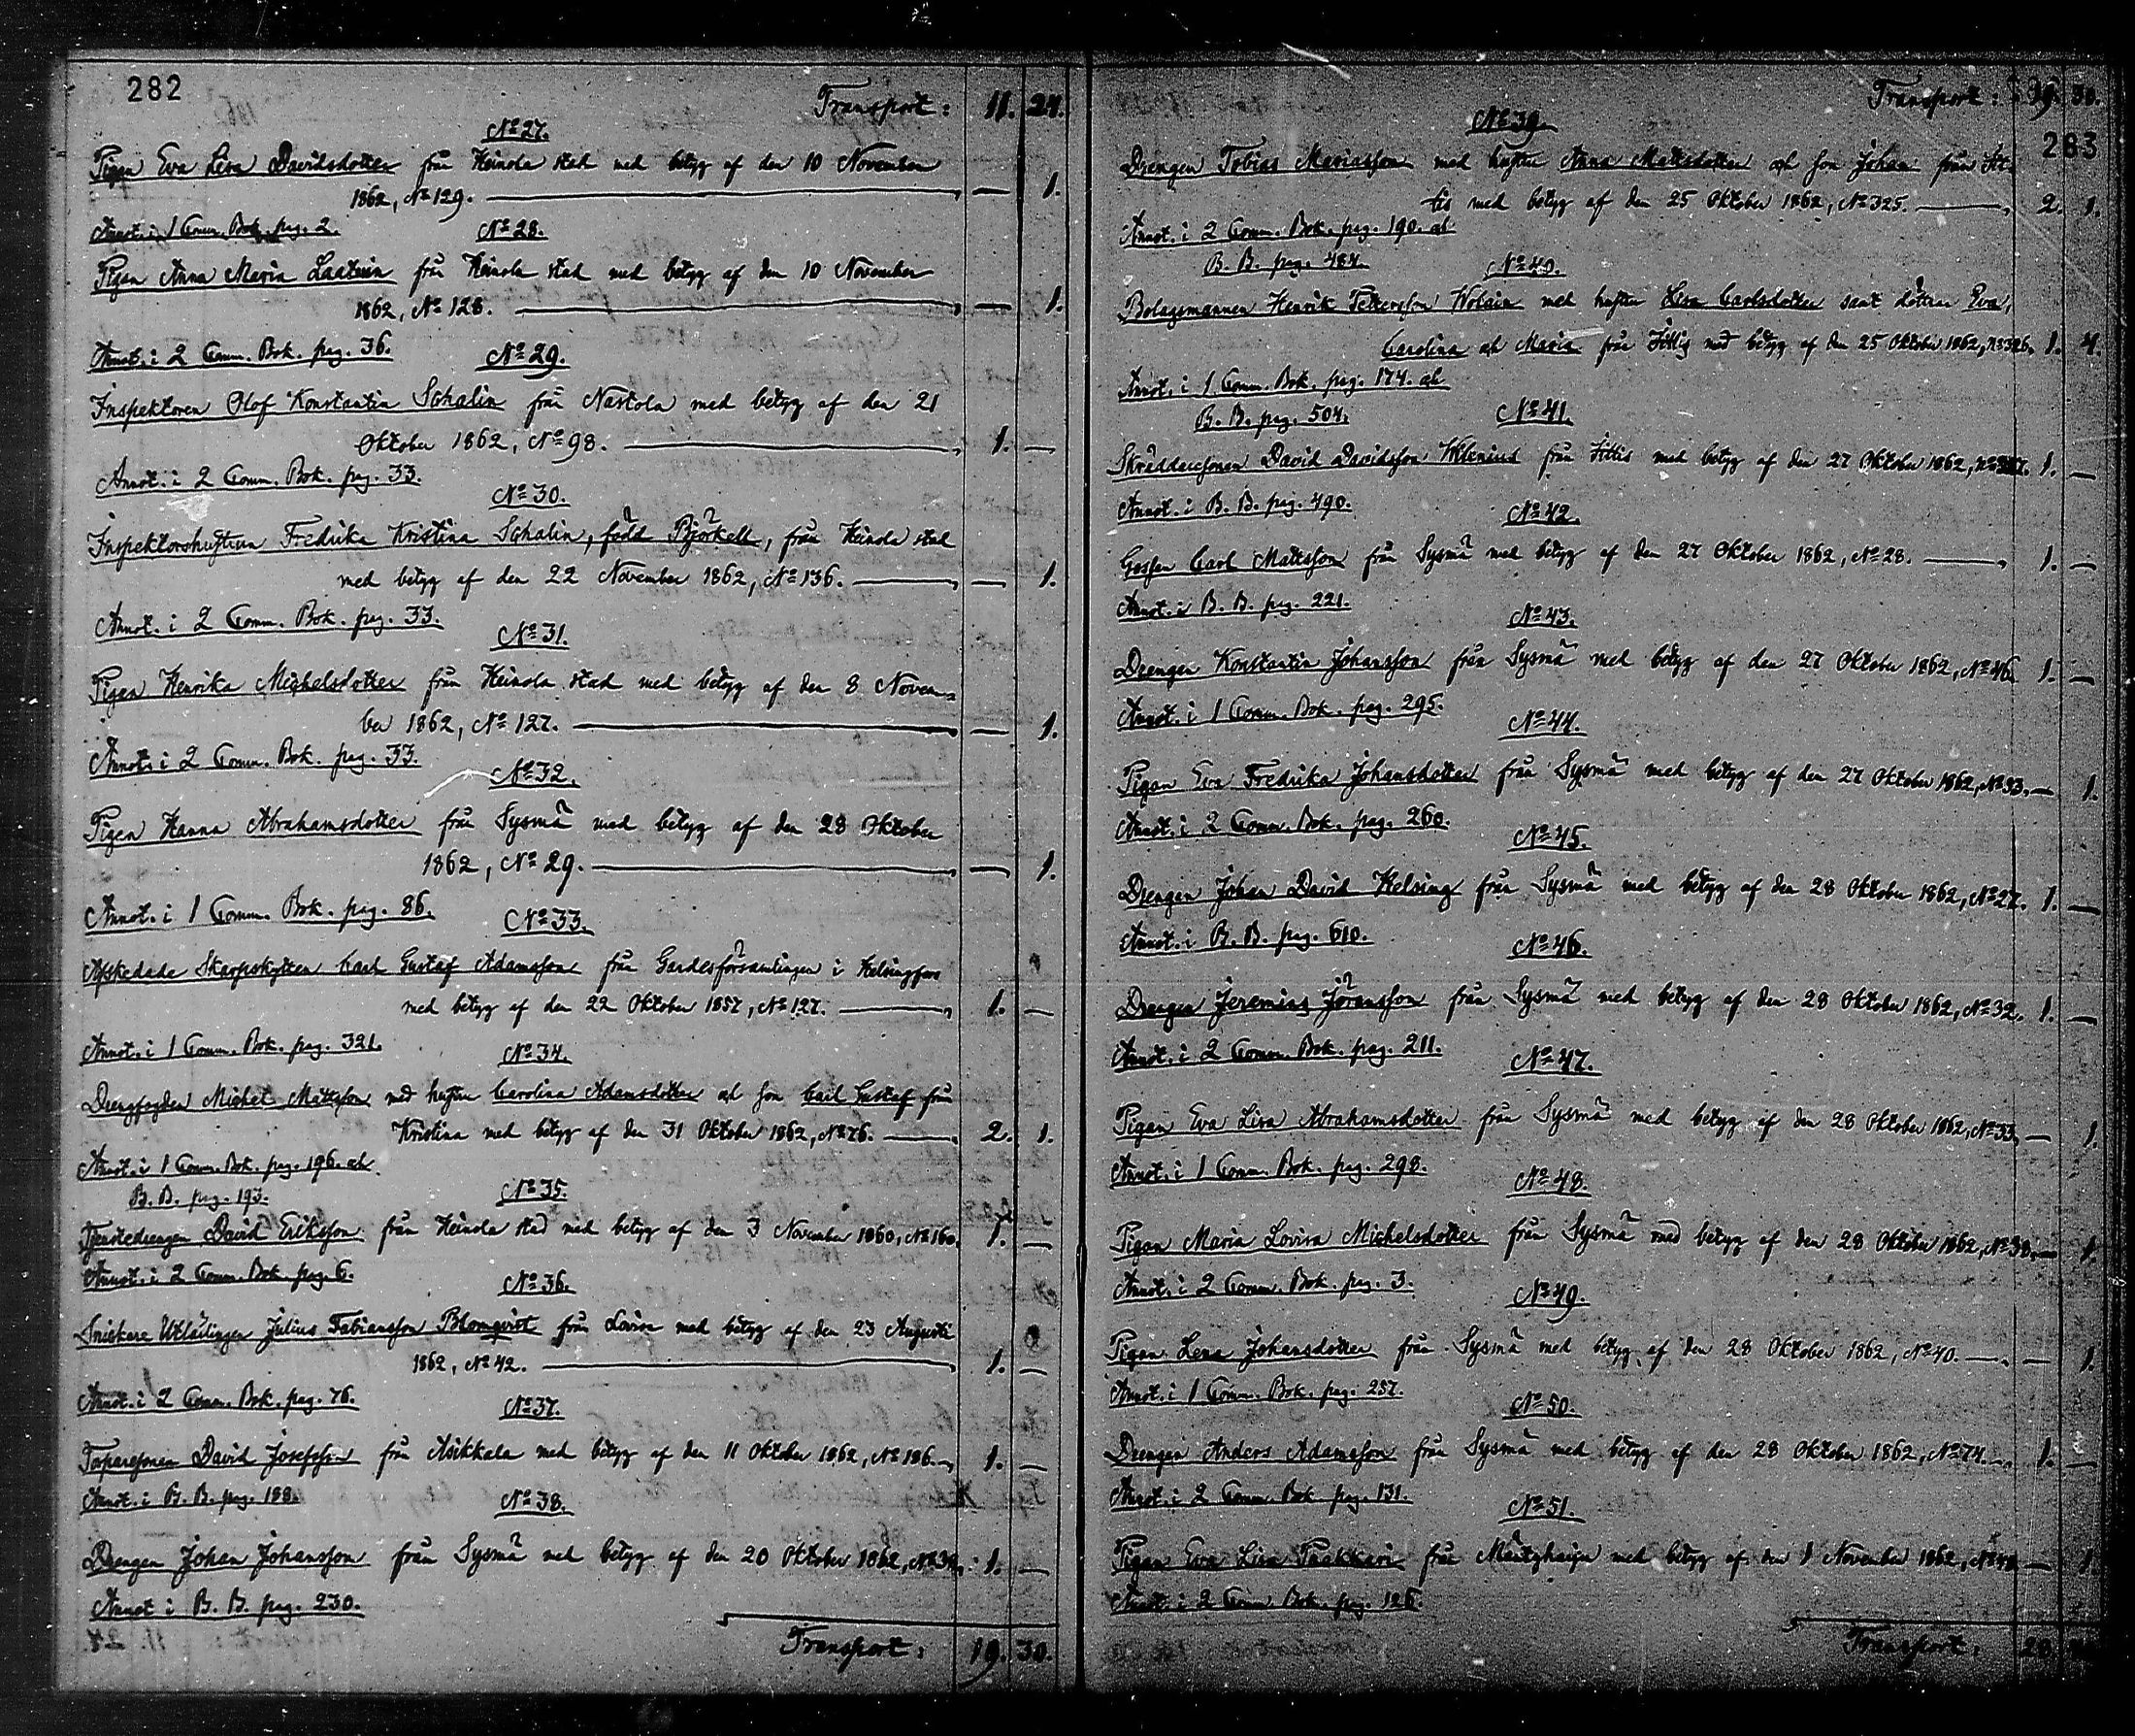 282
Transport: 11. 24.
No 27.
Pigan Eva Lisa Davidsdotter från Heinola stad med betyg af den 10 November
1862, No 129. — 1.
Annot. i 1 Comm. Bok. pag. 2.
No 28.
Pigan Anna Maria från Heinola stad med betyg af den 10 November
1862, No 128. — 1.
Annot. i 2 Comm. Bok. pag. 36.
No 29.
Inspektoren Olof Konstantin Schalin från Nastola med betyg af den 21
Oktober 1862, No 98. 1. —
Annot. i 2 Comm. Bok. pag. 33.
No 30.
Inspektorshustrun Fredrika Kristina Schalin, född Björkell, från Heinola stad
med betyg af den 22 November 1862, No 136. — 1.
Annot. i 2 Comm. Bok. pag. 33.
No 31.
Pigan Henrika Michelsdotter från Heinola stad med betyg af den 8 Novem-
ber 1862, No 127. — 1.
Annot. i 2 Comm. Bok. pag. 33.
No 32.
Pigan Hanna Abrahamsdotter från Sysmä med betyg af den 28 Oktober
1862, No 29. — 1.
Annot. i 1 Comm. Bok. pag. 86.
No 33.
Afskedade Skarpskytten Carl Gustaf Adamsson från Gardesförsamlingen i Helsingfors
med betyg af den 22 Oktober 1857, No 127. 1. —
Annot. i 1 Comm. Bok. pag. 321.
No 34.
Drengfogden Michel Mattsson med hustru Carolina Adamsdotter och son Carl Gustaf från
Kristina med betyg af den 31 Oktober 1862, No 76. 2. 1.
Annot. i 1 Comm. Bok. pag. 196. och
B. B. pag. 193.
No 35.
Tjenstedrengen David Eriksson från Heinola stad med betyg af den 3 November 1860, No 160. 1. —
Annot. i 2 Comm. Bok. pag. 6.
No 36.
Snickare Utlärlingen Julius Fabiansson Blomqvist från Lovisa med betyg af den 23 Augusti
1862, No 42. 1. —
Annot. i 2 Comm. Bok. pag. 76.
No 37.
Torparesonen David Josefsson från Asikkala med betyg af den 11 Oktober 1862, No 186. 1. —
Annot. i B. B. pag. 188.
No 38.
Drengen Johan Johansson från Sysmä med betyg af den 20 Oktober 1862, 1. —
Annot i B. B. pag. 230.
Transport: 19. 30.
Transport: 19. 30.
283
No 39.
Drengen Tobias Mariasson med hustru Anna Mattsdotter och son Johan från Iit-
tis med betyg af den 25 Oktober 1862, No 325. 2. 1.
Annot. i 2 Comm. Bok. pag. 190. och
B. B. pag. 484.
No 40.
Bolagsmannen Henrik Pettersson med hustru Lisa Carlsdotter samt döttrar Eva,
Carolina och Maria från Iittis med betyg af den 25 Oktober 1862, No 326. 1. 4.
Annot. i 1 Comm. Bok. pag. 174. och
B. B. pag. 504.
No 41.
Skräddaresonen David Davidsson från Iittis med betyg af den 27 Oktober 1862, 1. —
Annot. i B. B. pag. 490.
No 42.
Gossen Carl Mattsson från Sysmä med betyg af den 27 Oktober 1862, No 28. 1. —
Annot. i B. B. pag. 221.
No 43.
Drengen Konstantin Johansson från Sysmä med betyg af den 27 Oktober 1862, No 46. 1. —
Annot. i 1 Comm. Bok. pag. 295.
No 44.
Pigan Eva Fredrika Johansdotter från Sysmä med betyg af den 27 Oktober 1862, No 33. — 1.
Annot. i 2 Comm. Bok. pag. 260.
No 45.
Drengen Johan David Helsing från Sysmä med betyg af den 28 Oktober 1862, No 27. 1. —
Annot. i B. B. pag. 610.
No 46.
Drengen Jeremias Jöransson från Sysmä med betyg af den 28 Oktober 1862, No 32. 1. —
Annot. i 2 Comm. Bok. pag. 211.
No 47.
Pigan Eva Lisa Abrahamsdotter från Sysmä med betyg af den 28 Oktober 1862, No 33. — 1.
Annot. i 1 Comm. Bok. pag. 298.
No 48.
Pigan Maria Lovisa Michelsdotter från Sysmä med betyg af den 28 Oktober 1862, No 38. — 1.
Annot. i 2 Comm. Bok. pag. 3.
No 49.
Pigan Lena Johansdotter från Sysmä med betyg af den 28 Oktober 1862, No 40. — 1.
Annot. i 1 Comm. Bok. pag. 257.
No 50.
Drengen Anders Adamsson från Sysmä med betyg af den 28 Oktober 1862, No 74. 1. —
Annot. i 2 Comm. Bok. pag. 131.
No 51.
Pigan Eva Lisa från Mäntyharju med betyg af den 1 November 1862, — 1.
Annot. i 2 Comm. Bok. pag. 126.
Transport: